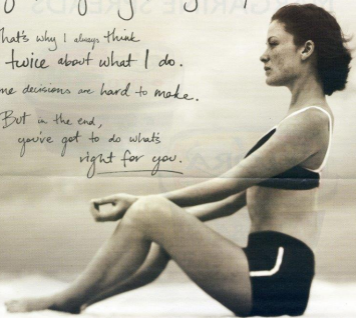 that's why I always think
twice about what I do.
decisions are hard to make.
But in the end,
you've got to do what's
right for you.